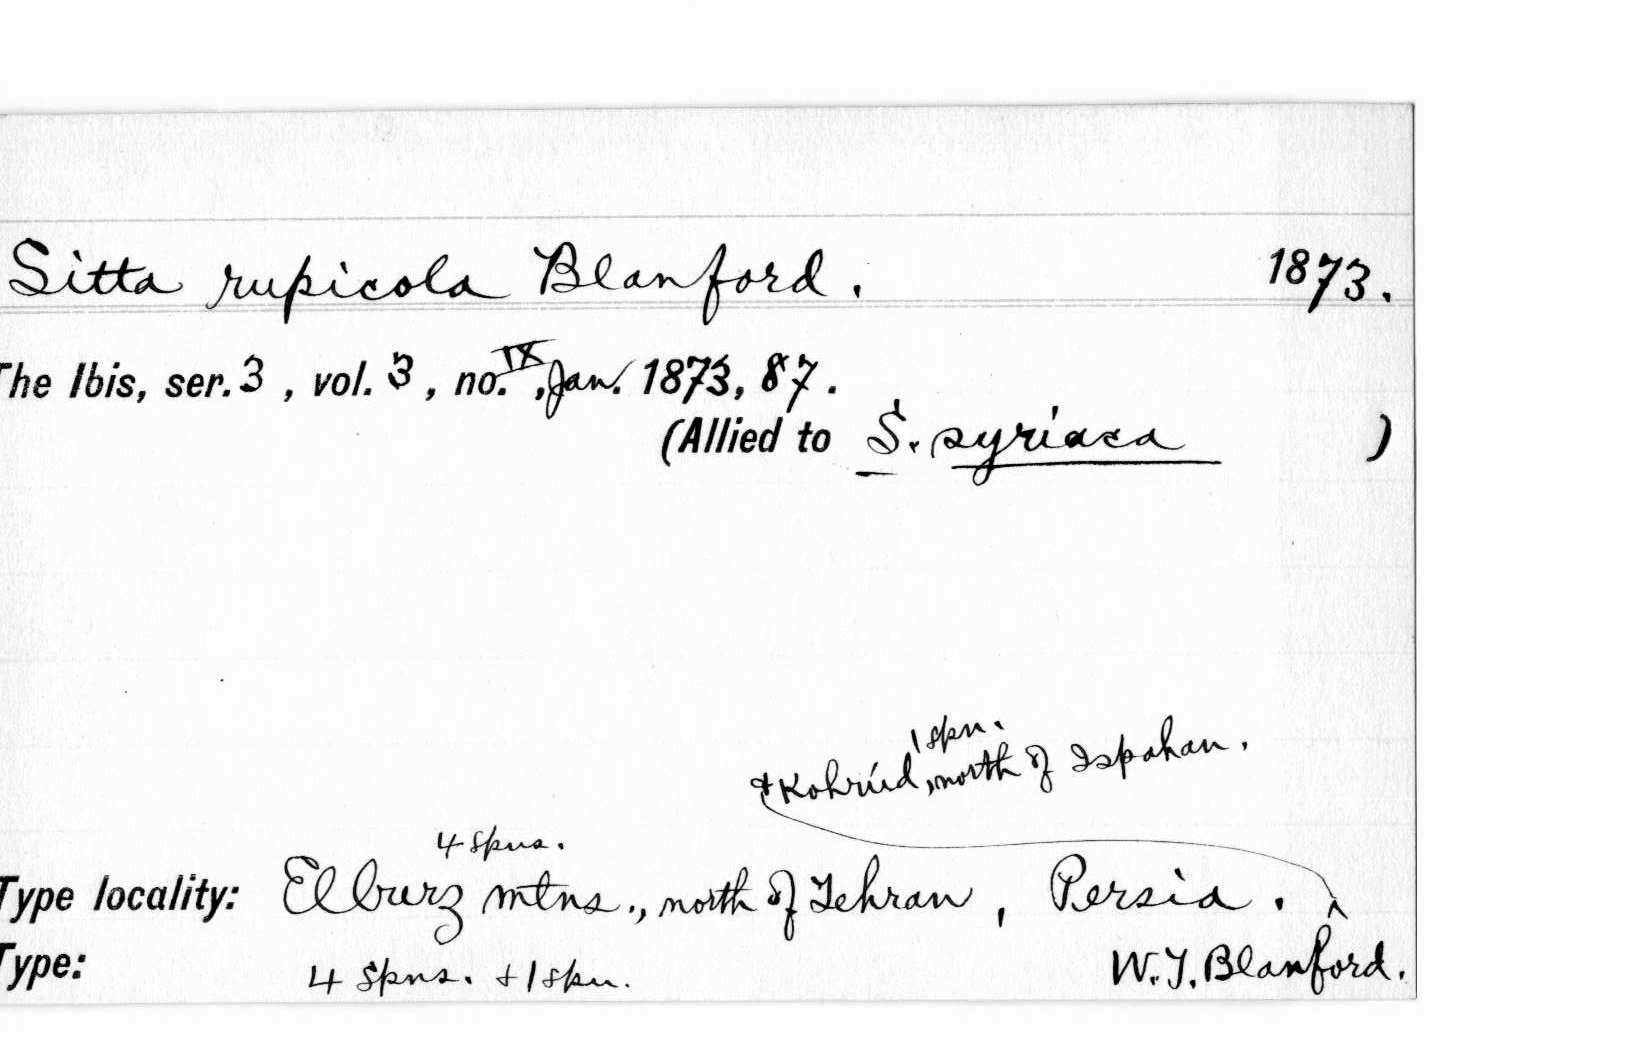 Sitta rupicola Blanford. 1873.
The Ibis, ser. 3, vol. 3, no. IX, Jan. 1873, 87.
(Allied to S. syriaca )
1 spn.
& Kohrúd, north of Ispahan.
4 spns.
Type locality: Elburz mtns., north of Tehran, Persia. ^
Type: 4 spns. + 1 spn. W.T. Blanford.